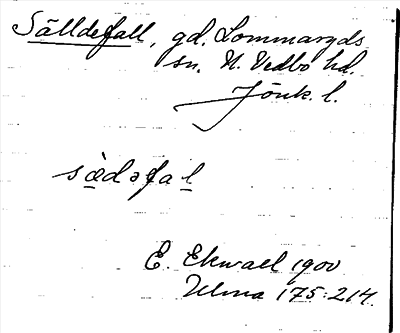 Sälldefall, gd. Lommaryds
sn. N. Vedbo hd.
Jönk. l.
sædəfal
E. Ekwall 1900
Ulma 175:214.